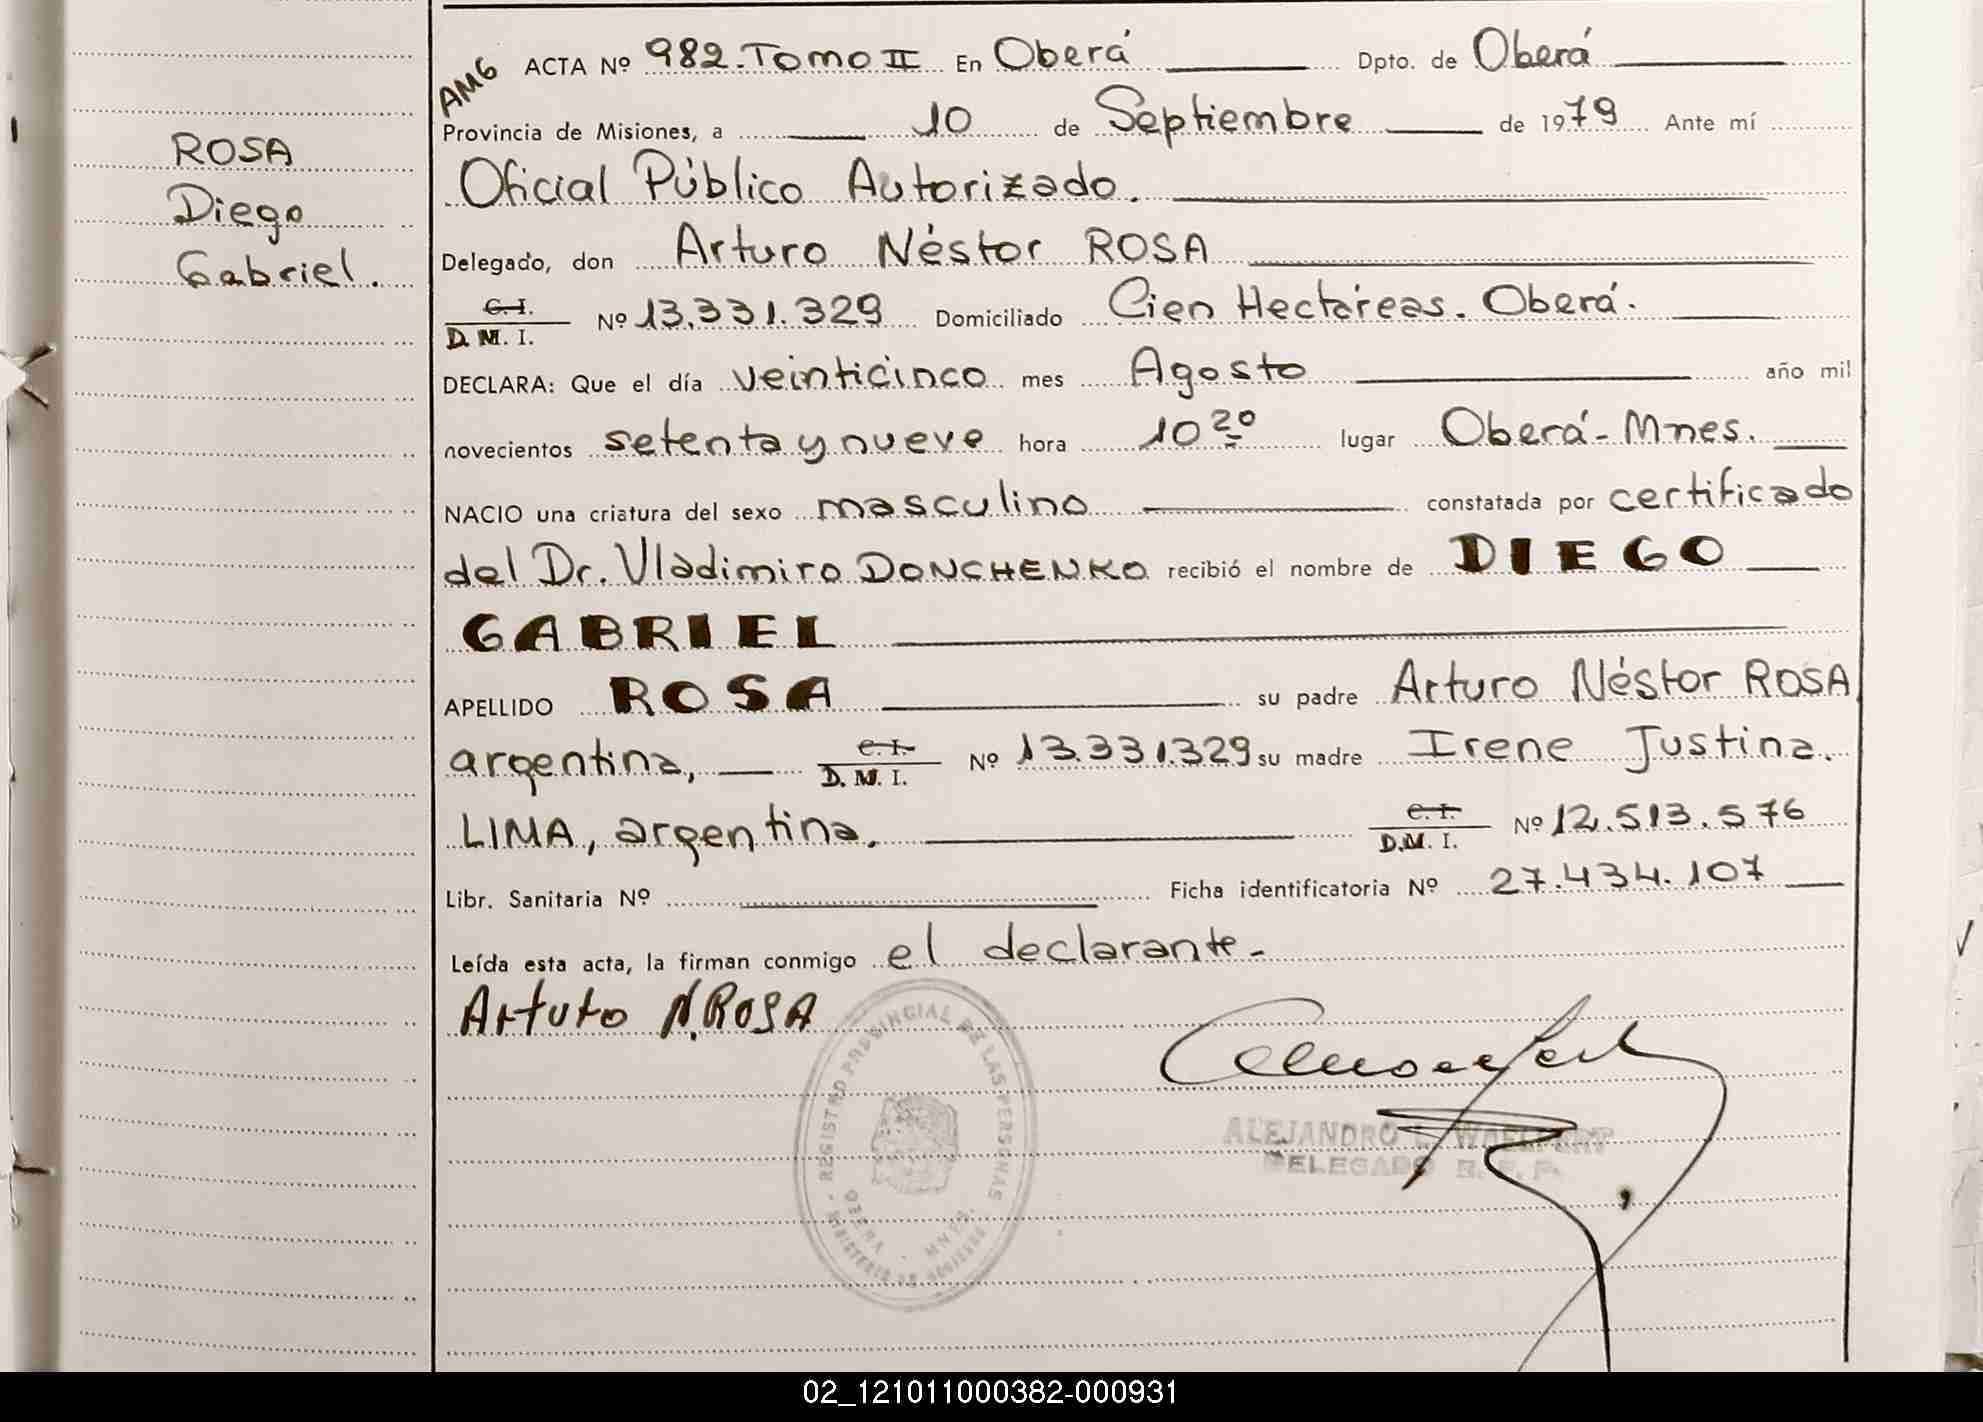 AMG
ACTA Nº 982. Tomo II En Oberá Dpto. de Oberá
Provincia de Misiones, a 10 de Septiembre de 1979 Ante mí
Oficial Público Autorizado.
ROSA
Diego
Gabriel.
Delegado, don Arturo Néstor ROSA
C. I.
D. M. I. Nº 13.331.329 Domiciliado Cien Hectáreas. Oberá.
DECLARA: Que el día veinticinco mes Agosto año mil
novecientos setenta y nueve hora 10 20 lugar Oberá - Mnes.
NACIO una criatura del sexo masculino constatada por certificado
del Dr. Vladimiro DONCHENKO recibió el nombre de DIEGO
GABRIEL
APELLIDO ROSA su padre Arturo Néstor ROSA
argentina, C. I. D. M. I. Nº 13.331.329 su madre Irene Justina
LIMA, argentina. C. I. D. M. I. Nº 12.513.576
Libr. Sanitaria Nº Ficha identificatoria Nº 27.434.107
Leída esta acta, la firman conmigo el declarante.-
Arturo N. ROSA
REGISTRO PROVINCIAL DE LAS PERSONAS
OBERA - MNES.
MINISTERIO DE GOBIERNO
ALEJANDRO L. WAELPERT
DELEGADO R. P. P.
02_121011000382-000931